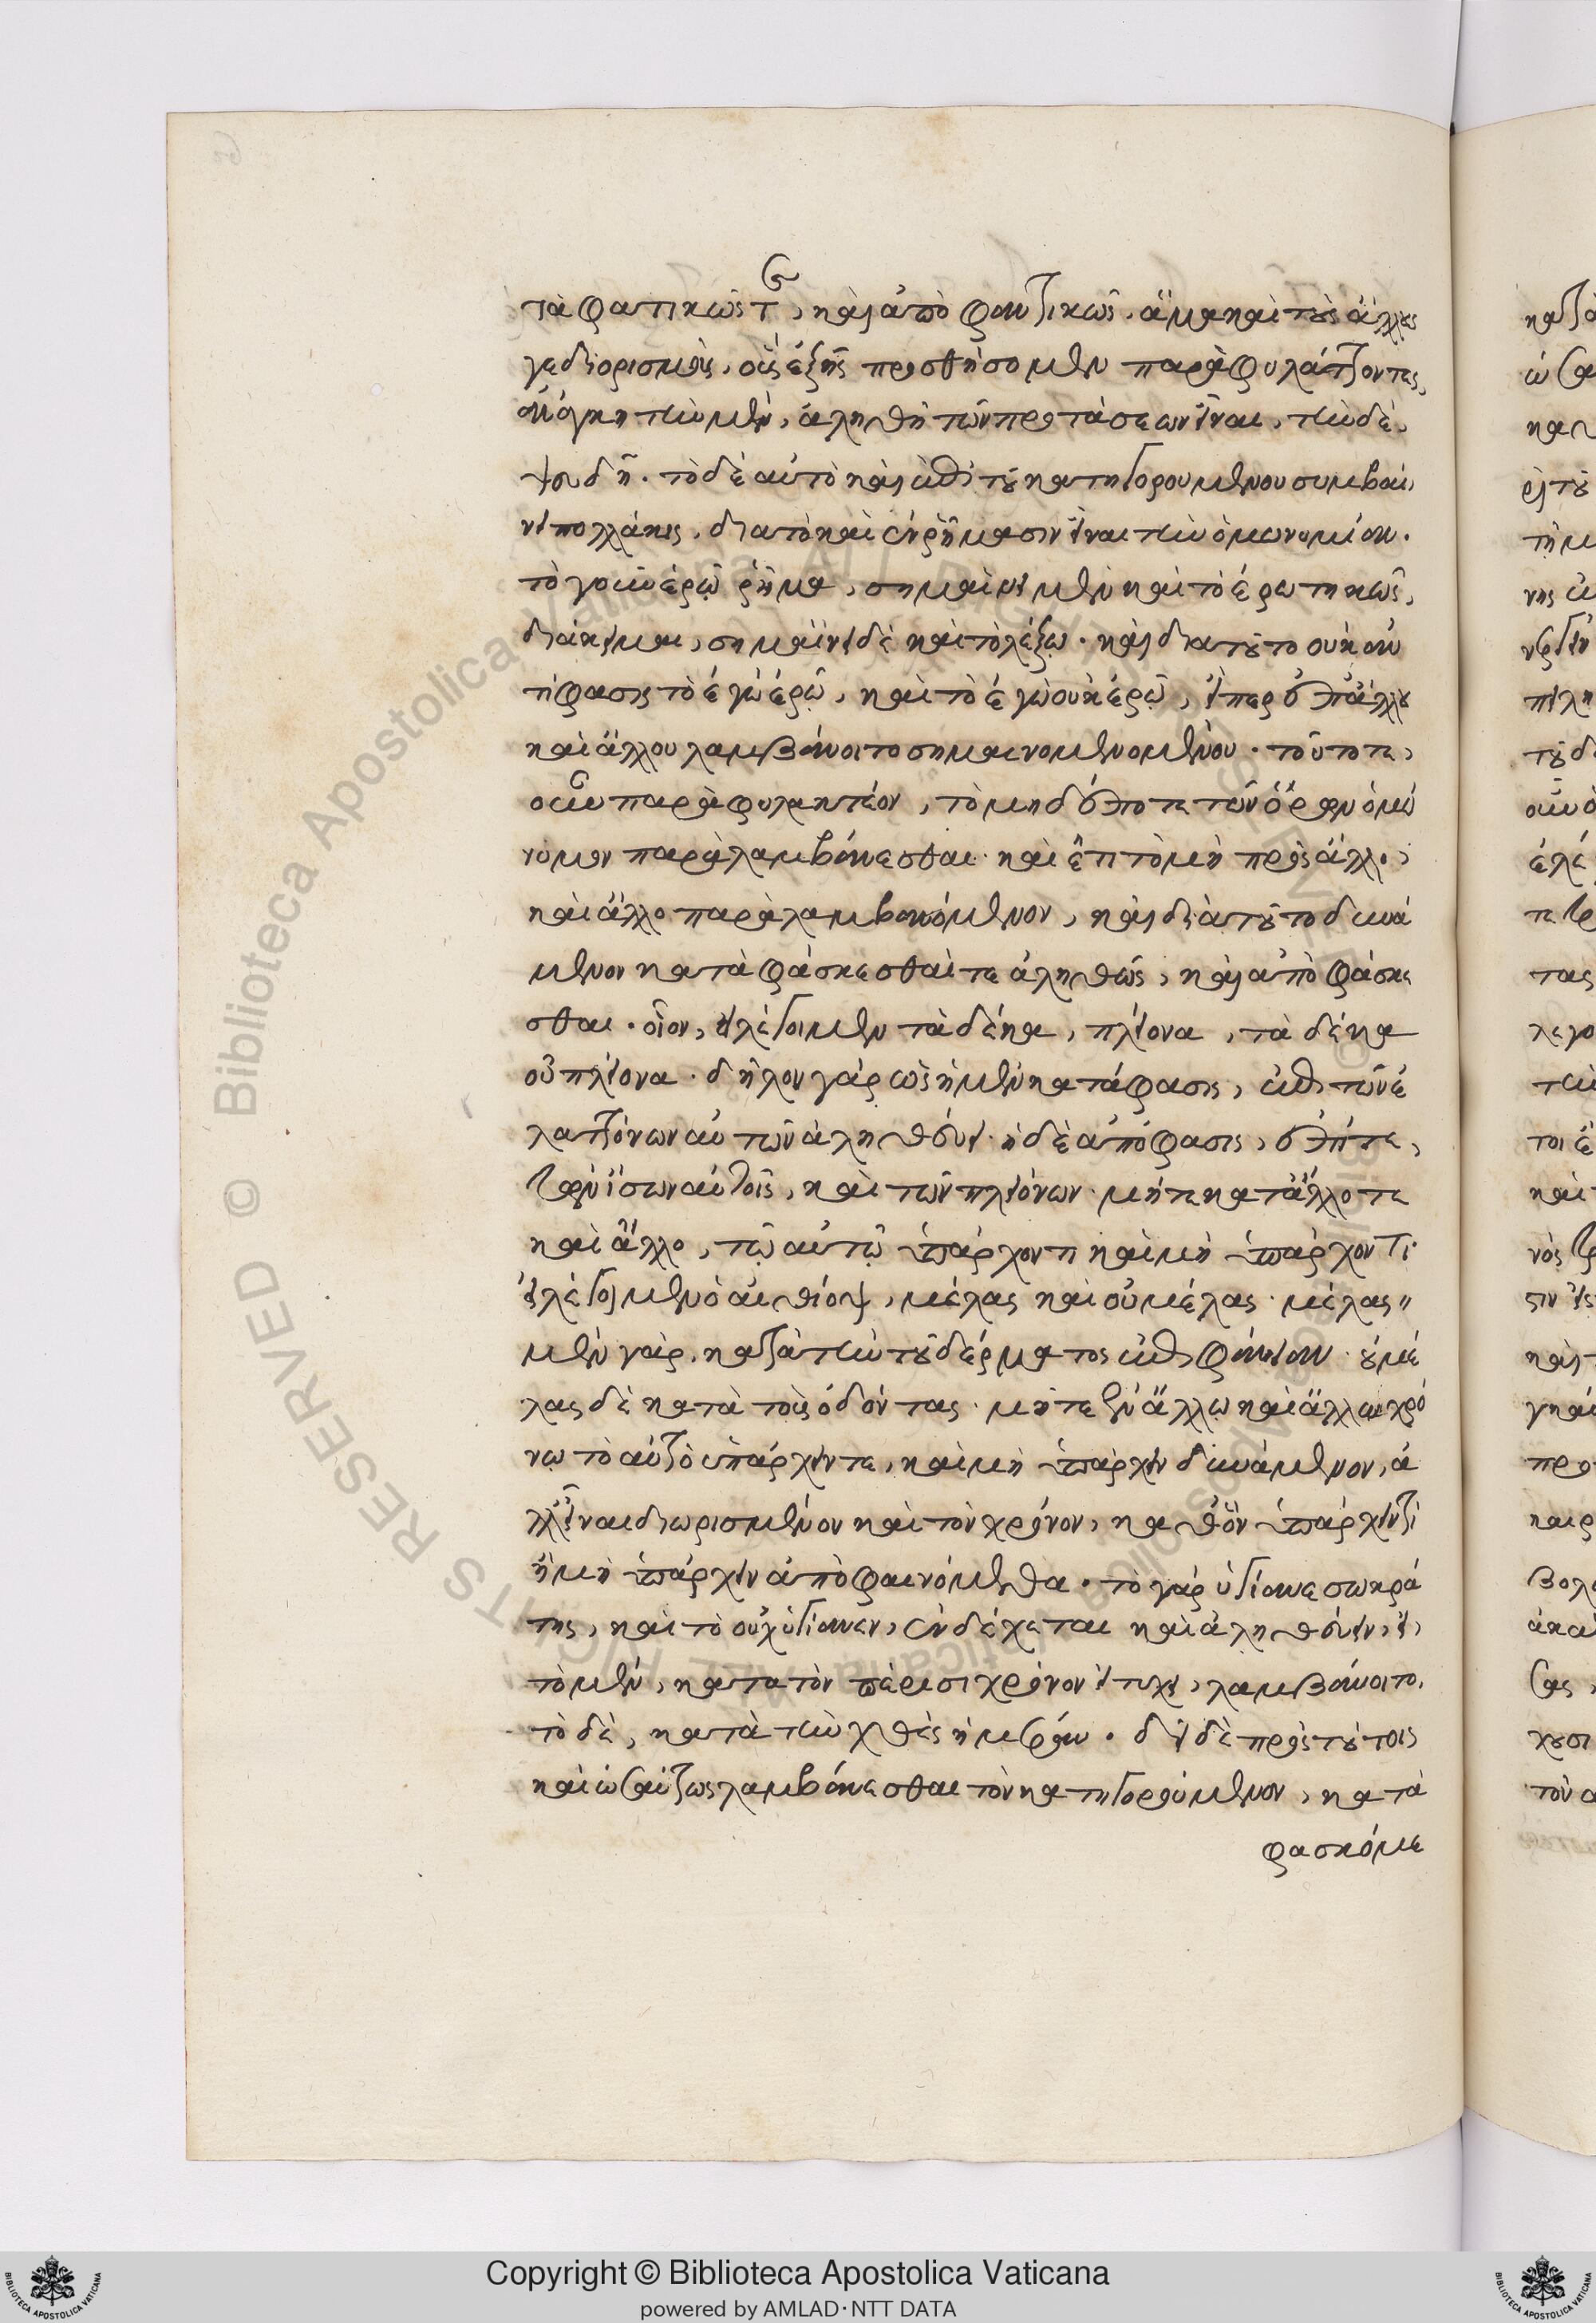 τα φατικῶς τε, καὶ ἀποφαντικῶς. ἅμα καὶ τοὺς ἄλλους
γε διορισμοὺς, οὓς ἑξῆς προσθήσομεν παραφυλάττοντες,
ἀνάγκη τὴν μὲν, ἀληθῆ τῶν προτάσεων εἶναι, τὴν δὲ,
ψευδῆ. τὸ δὲ αὐτὸ καὶ ἐπὶ τοῦ κατηγορουμένου συμβαί
νει πολλάκις, διατὸ καὶ ἐν ῥήμασιν εἶναι τὴν ὁμωνυμίαν.
τὸ γοῦν ἐρῶ ῥῆμα, σημαίνει μὲν καὶ τὸ ἐρωτικῶς,
διάκειμαι, σημαίνει δὲ καὶ τὸ λέξω. καὶ διατοῦτο οὐκ ἀν
τίφασις τὸ ἐγὼ ἐρῶ, καὶ τὸ ἐγὼ οὐκ ἐρῶ, εἴπερ ἐπ' ἄλλου
καὶ ἄλλου λαμβάνοιτο σημαινομενομένου. τοῦτό τε,
οὖν παραφυλακτέον, τὸ μηδέποτε τῶν ὅρων ὁμώ
νυμον παραλαμβάνεσθαι. καὶ ἔτι τὸ μὴ πρὸς ἄλλο,
καὶ ἄλλο παραλαμβανόμενον, καὶ διὰ τοῦτο δυνά
μενον καταφάσκεσθαί τε ἀληθῶς, καὶ ἀποφάσκε
σθαι. οἷον, εἰ λέγοιμεν τὰ δέκα, πλείονα, τὰ δέκα
οὐ πλείονα. δῆλον γὰρ ὡς ἡ μὲν κατάφασις, ἐπὶ τῶν ἐ
λαττόνων αὐτῶν ἀληθεύει. ἡ δὲ ἀπόφασις, ἐπί τε,
τῶν ἴσων αὐτοῖς, καὶ τῶν πλειόνων. μήτε κατ' ἄλλο τε
καὶ ἄλλο, τῷ αὐτῷ ὑπάρχοντι καὶ μὴ ὑπάρχοντι.
εἰ λέγοιμεν ὁ αἰθίοψ, μέλας καὶ οὐ μέλας. μέλας
μὲν γὰρ, κατὰ τὴν τοῦ δέρματος ἐπιφάνειαν. οὐ μέ
λας δὲ κατὰ τοὺς ὀδόντας. μήτε ἐν ἄλλῳ καὶ ἄλλῳ χρό
νῳ τὸ αὐτὸ ὑπάρχειν τε, καὶ μὴ ὑπάρχειν δυνάμενον, ἀ
λλ' εἶναι διωρισμένον καὶ τὸν χρόνον, καθ' ὃν ὑπάρχειν τι
ἢ μὴ ὑπάρχειν ἀποφαινόμεθα. τὸ γὰρ ὑγίανε σωκρά
της, καὶ τὸ οὐχ ὑγίαινεν, ἐνδέχεται καὶ ἀληθεύειν, εἰ,
τὸ μὲν, κατὰ τὸν πέρυσι χρόνον εἰ τύχει, λαμβάνοιτο,
τὸ δὲ, κατὰ τὴν χθὲς ἡμέραν. δεῖ δὲ πρὸς τούτοις
καὶ ὡσαύτως λαμβάνεσθαι τὸν κατηγορούμενον, κατα
φασκόμε